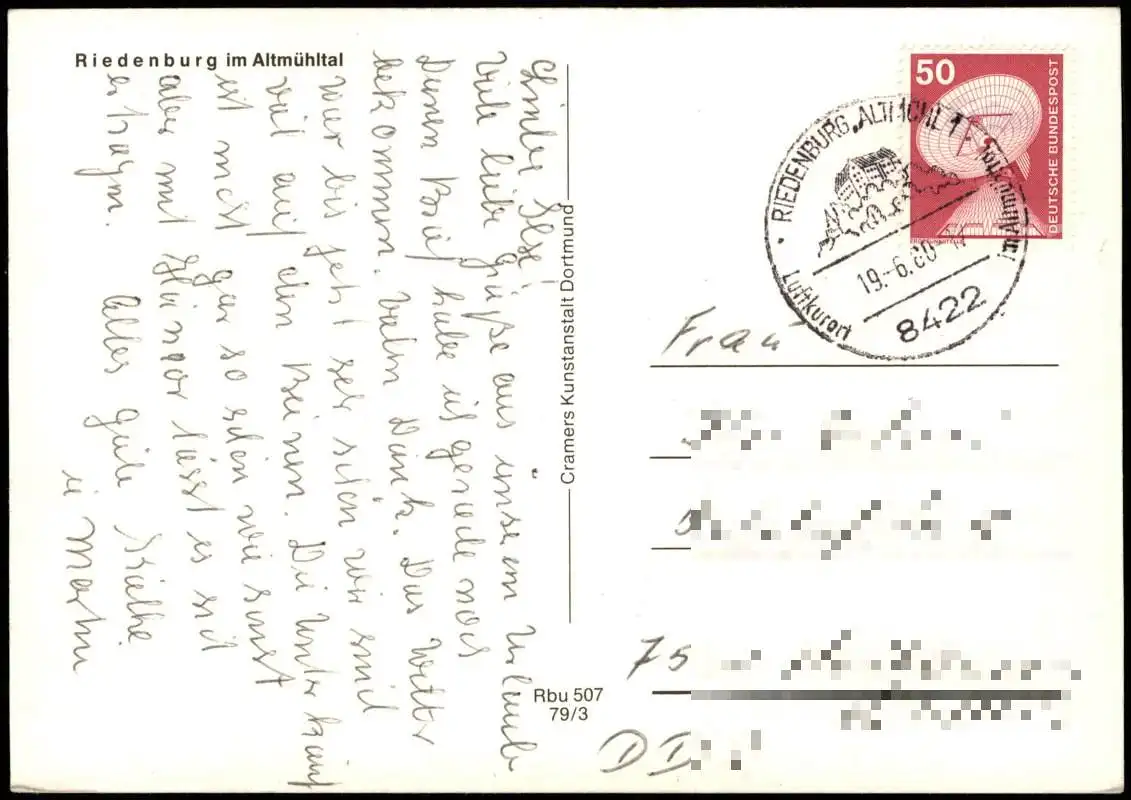 Riedenburg im Altmühltal
Liebe Ilse
Viele liebe Grüße aus unserem Urlaub
Deinen Brief habe ich gerade noch
bekommen. Vieln Dank. Das Wetter
war bis jetz ser schön wir sind
viel auf den Beinen. Die Unterkunft
ist nicht gar so schön wie sonst
aber mit Humor lässt es sich
ertragen. Alles gute Käthe
u Martin
Cramers Kunstanstalt Dortmund
Rbu 507
79/3
50
DEUTSCHE BUNDESPOST
ERDEFUNKSTELLE
RIEDENBURG, ALTMÜHL 1
19.-6.80
Luftkurort
8422
Frau
75